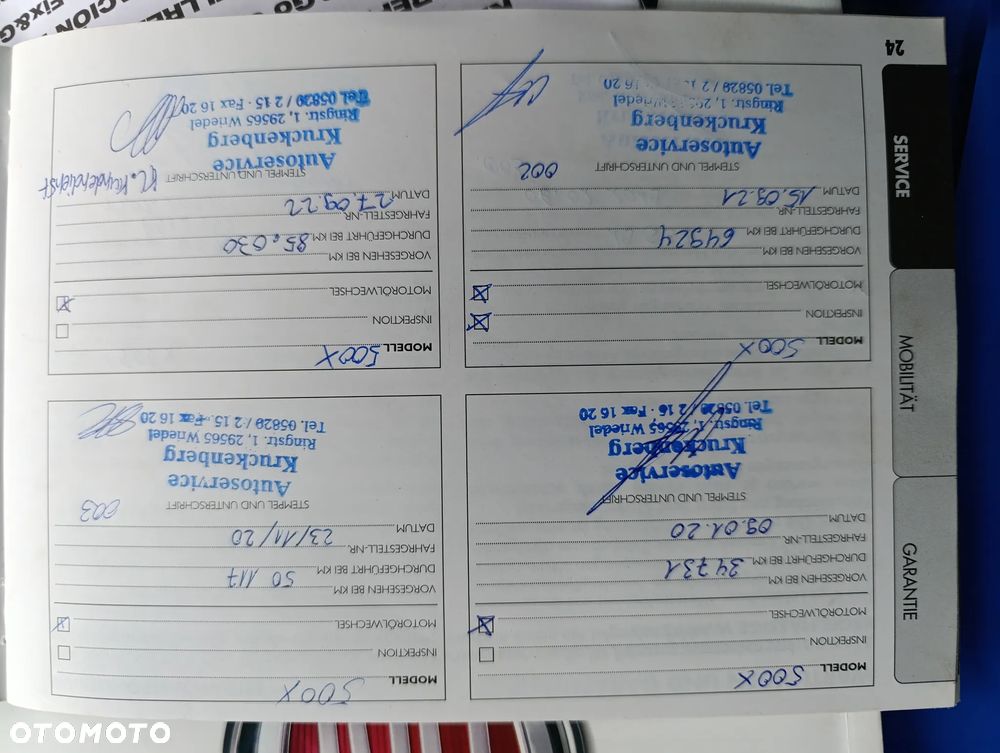 MODELL 500X
INSPEKTION
MOTORÖLWECHSEL
VORGESEHEN BEI KM
DURCHGEFÜHRT BEI KM 34731
FAHRGESTELL-NR.
DATUM 09.01.20
STEMPEL UND UNTERSCHRIFT
Autoservice
Kruckenberg
Ringstr. 1, 29565 Wriedel
Tel. 05829 / 2 15 · Fax 16 20
MODELL 500X
INSPEKTION
MOTORÖLWECHSEL
VORGESEHEN BEI KM
DURCHGEFÜHRT BEI KM 50 117
FAHRGESTELL-NR.
DATUM 23/11/20
STEMPEL UND UNTERSCHRIFT 003
Autoservice
Kruckenberg
Ringstr. 1, 29565 Wriedel
Tel. 05829 / 2 15 · Fax 16 20
MODELL 500X
INSPEKTION
MOTORÖLWECHSEL
VORGESEHEN BEI KM
DURCHGEFÜHRT BEI KM 64924
FAHRGESTELL-NR.
DATUM 15.09.21
STEMPEL UND UNTERSCHRIFT 002
Autoservice
Kruckenberg
Ringstr. 1, 29565 Wriedel
Tel. 05829 / 2 15 · Fax 16 20
MODELL 500X
INSPEKTION
MOTORÖLWECHSEL
VORGESEHEN BEI KM
DURCHGEFÜHRT BEI KM 85.030
FAHRGESTELL-NR.
DATUM 27.09.22
STEMPEL UND UNTERSCHRIFT Kl. Kundendienst
Autoservice
Kruckenberg
Ringstr. 1, 29565 Wriedel
Tel. 05829 / 2 15 · Fax 16 20
24
SERVICE
MOBILITÄT
GARANTIE
OTOMOTO